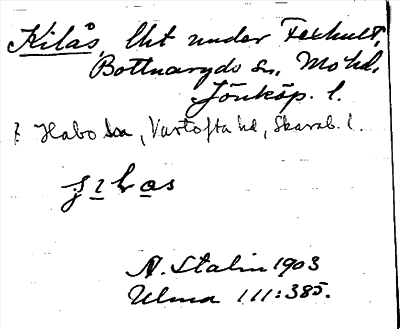 Kilås, lht under Texhult,
Bottnaryds sn, Mo hd.
Jönköp. l.
Habo sn, Vartofta hd, Skarab. l.
A. Stalin 1903
Ulma 111:385.